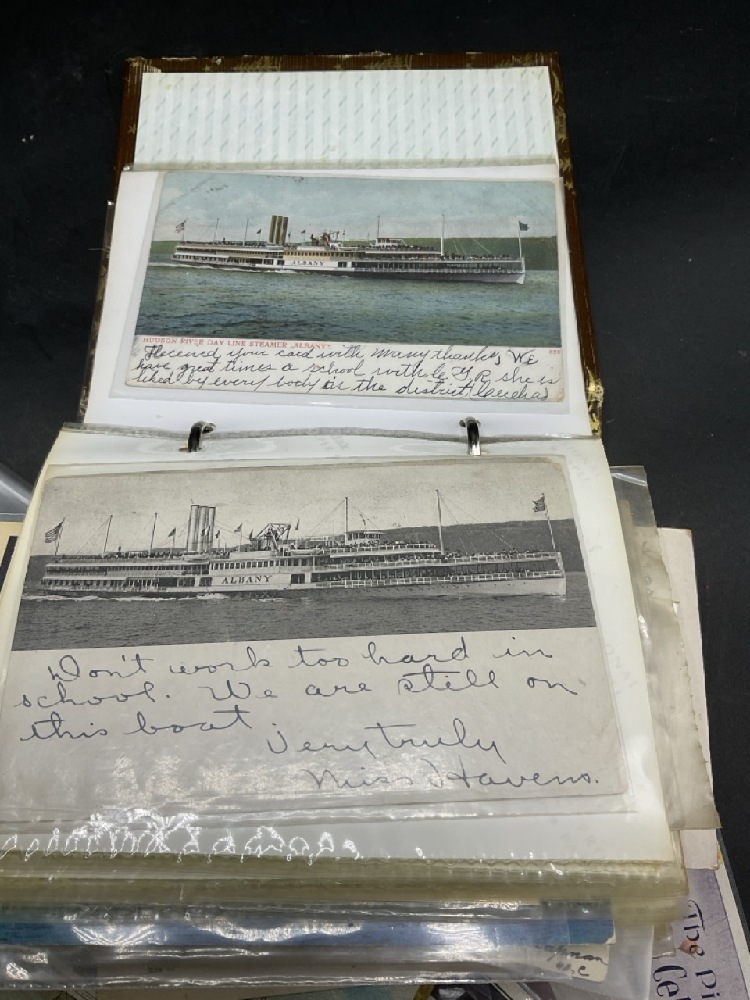 ALBANY
HUDSON RIVER DAY LINE STEAMER „ALBANY".
Received your card with many thanks, We
have great times a school with G. R. she is
liked by every body in the district
ALBANY
Don't work too hard in
school. We are still on
this boat.
Very truly
Miss Havens.
The Pi